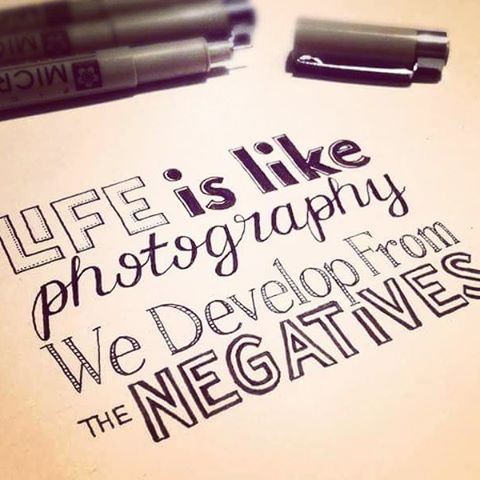 MICR
LIFE is like
photography
We Develop From
THE NEGATIVES